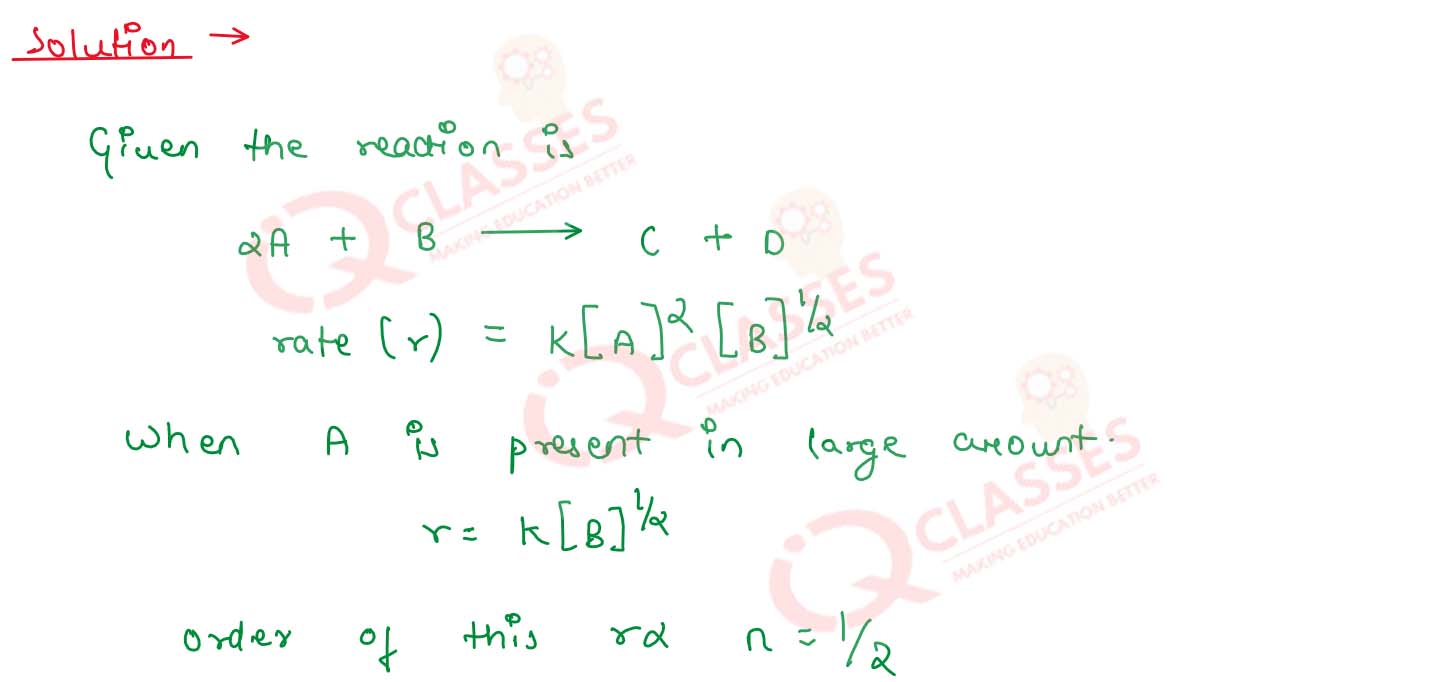 Solution →
Given the reaction is
2A + B ⟶ C + D
rate (r) = K[A]² [B]^1/2
When A is present in large amount.
r = K[B]^1/2
order of this rx n = 1/2
iQ CLASSES
MAKING EDUCATION BETTER
iQ CLASSES
MAKING EDUCATION BETTER
iQ CLASSES
MAKING EDUCATION BETTER